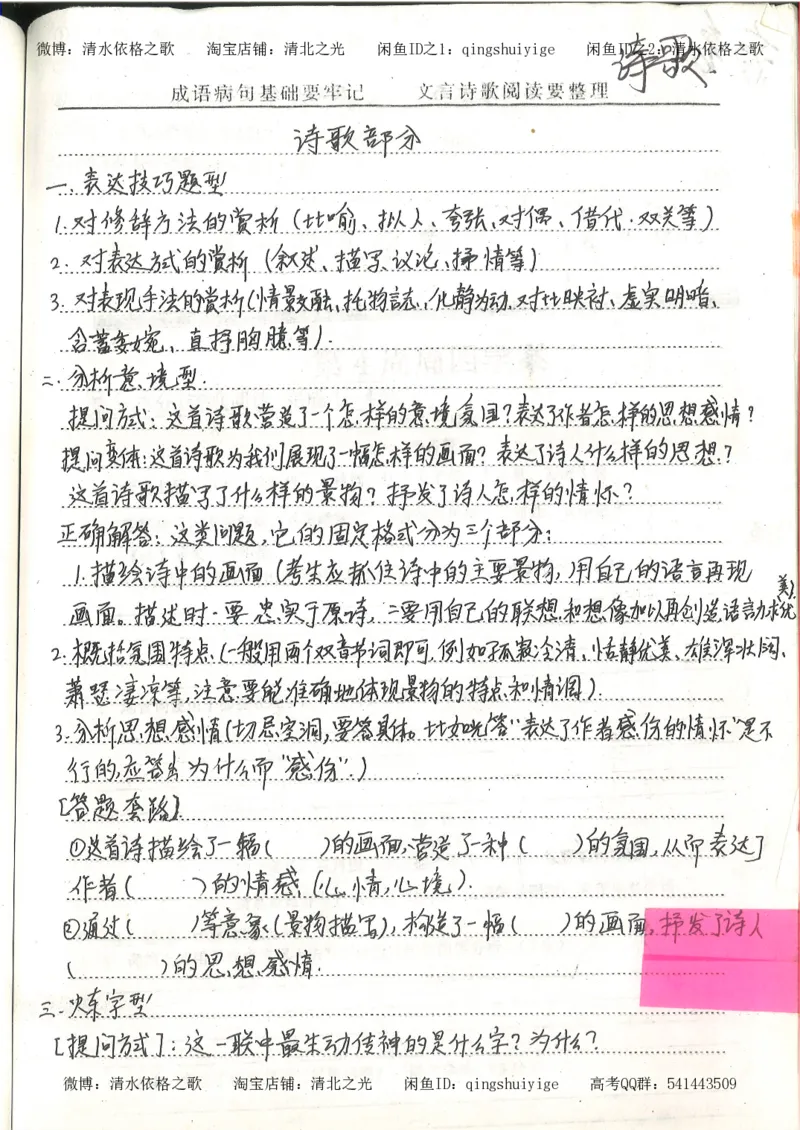 微博：清水依格之歌 淘宝店铺：清北之光 闲鱼ID之1：qingshuiyige 闲鱼ID之2：清水依格之歌
诗歌.
成语病句基础要牢记 文言诗歌阅读要整理
诗歌部分
一.表达技巧题型
1.对修辞方法的赏析（比喻、拟人、夸张、对偶、借代.双关等）
2.对表达方式的赏析（叙述、描写、议论、抒情等）
3.对表现手法的赏析（情景交融、托物言志、化静为动.对比映衬、虚实明暗、
含蓄委婉、直抒胸臆等）.
二.分析意境型.
提问方式：这首诗歌营造了一个怎样的意境氛围？表达了作者怎样的思想感情？
提问变体：这首诗歌为我们展现了一幅怎样的画面？表达了诗人什么样的思想？
这首诗歌描写了什么样的景物？抒发了诗人怎样的情怀？
正确解答：这类问题，它的固定格式分为三个部分：
1.描绘诗中的画面（考生应抓住诗中的主要景物，）用自己的语言再现
画面。描述时一要忠实于原诗，二要用自己的联想和想像加以再创造语言力求优
美）.
2.概括氛围特点.（一般用两个双音节词即可.例如孤寂冷清、恬静优美、雄浑壮阔、
萧瑟凄凉等，注意要能准确地体现景物的特点和情调）.
3.分析思想感情（切忌空洞，要答具体。比如光答“表达了作者感伤的情怀”是不
行的，应答出为什么而“感伤”.）
[答题套路]
①这首诗描绘了一幅（ ）的画面，营造了一种（ ）的氛围，从而表达了
作者（ ）的情感（心情，心境）.
②通过（ ）等意象（景物描写），构造了一幅（ ）的画面，抒发了诗人
（ ）的思想感情.
三.炼字型
[提问方式]：这一联中最生动传神的是什么字？为什么？
微博：清水依格之歌 淘宝店铺：清北之光 闲鱼ID：qingshuiyige 高考QQ群：541443509